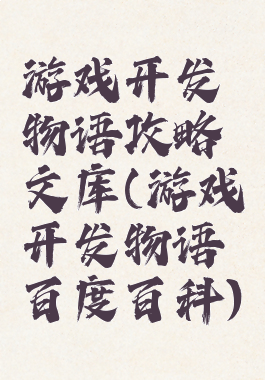 游戏开发
物语攻略
文库(游戏
开发物语
百度百科)